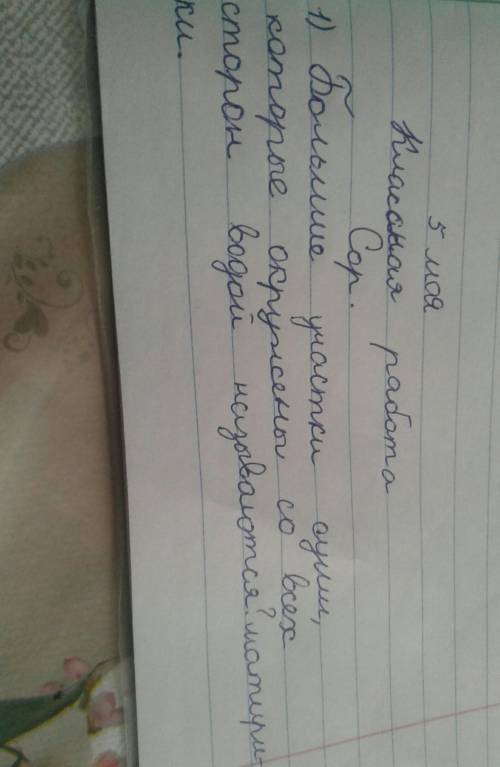 5 моя
Класеная работа
Сор.
1) Большие участки суши,
которые окружены со всех
сторон водой называются? матири-
ки.